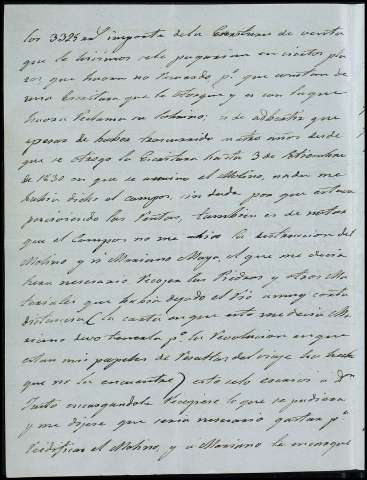 los 3325 rs importe de la Escritura de venta
que le hicimos se le pagarian en ciertos pla
zos que
una Escritura que la otorgue y es con la que
ahora reclama su sobrino; es de advertir que
apesar de haber transcurrido cuatro años desde
que se otorgo la Escritura hasta 3 de Setiembre
de 1830 en que se arruino el Molino, nada me
habia dicho el campos, sin duda por que estava
percibiendo las Rentas, tambien es de notar
que el Campos no me abiso la destruccion del
Molino y si Mariano Mayo, el que me decia
hera necesario recojer las Piedras y otros Ma
teriales que habia dejado el Rio a muy corta
distancia (la carta en que esto me decia Ma
riano devo tenerla pr. la Revolucion en que
estan mis papeles de resultas del viage ha hecho
que no la encuentre) esto se lo escrivi a Dn
Justo encargandole recojiese lo que se pudiera
y me dijese que seria necesario gastar pa.
Reedificar el Molino, y a Mariano le encargue